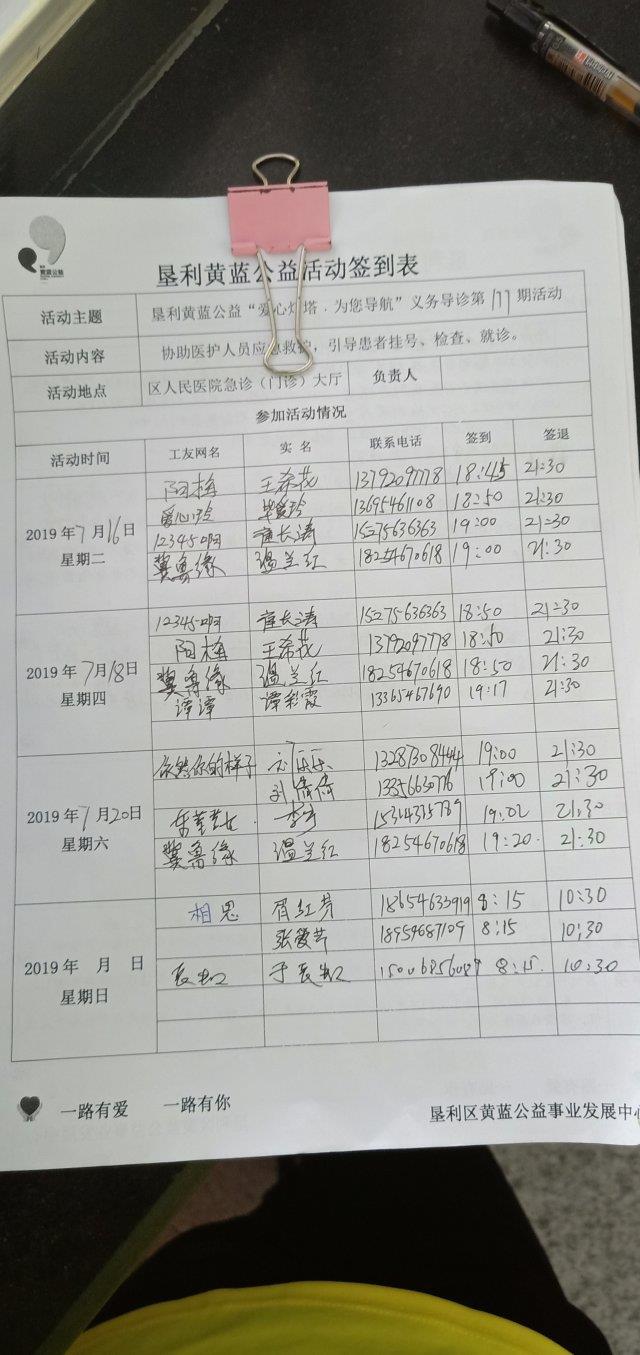 黄蓝公益
垦利黄蓝公益活动签到表
活动主题 垦利黄蓝公益“爱心灯塔．为您导航”义务导诊第177期活动
活动内容 协助医护人员应急救护，引导患者挂号、检查、就诊。
活动地点 区人民医院急诊（门诊）大厅 负责人
参加活动情况
活动时间 工友网名 实名 联系电话 签到 签退
2019年7月16日 星期二
阳梅 王希花 13792097778 18:45 21:30
爱心玲 13695461108 18:50 21:30
12345啊 崔长涛 15275636363 19:00 21:30
冀鲁缘 温兰红 18254670618 19:00 21:30
2019年7月18日 星期四
12345啊 崔长涛 15275636363 18:50 21:30
阳梅 王希花 13792097778 18:50 21:30
冀鲁缘 温兰红 18254670618 18:50 21:30
谭谭 谭彩霞 13365467690 19:17 21:30
2019年7月20日 星期六
依然你的样子 乐乐 13287308444 19:00 21:30
刘倩倩 19:00 21:30
19:02 21:30
冀鲁缘 温兰红 18254670618 19:20 21:30
2019年 月 日 星期日
相思 肖红芳 18654633919 8:15 10:30
张爱芹 18959687109 8:15 10:30
8:15 10:30
一路有爱 一路有你
垦利区黄蓝公益事业发展中心